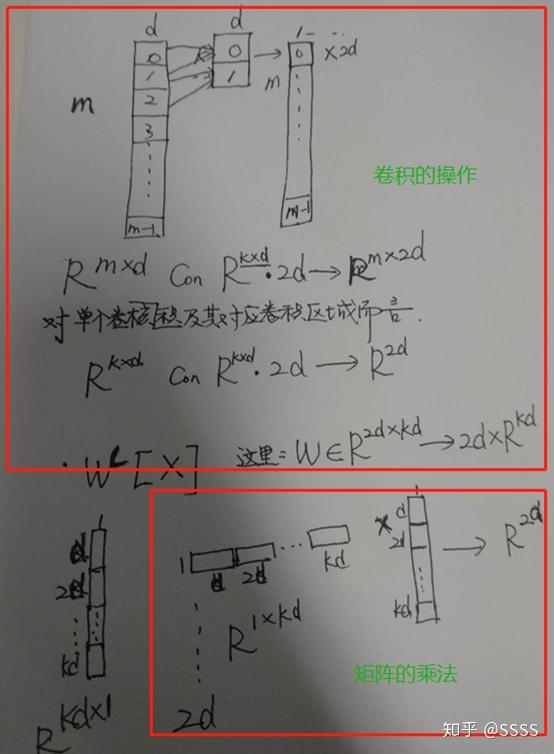 d d 1
0 0 0 ×2d
1 1
m 2 m
3
m-1 m-1
卷积的操作
R^{m×d} Con R^{k×d}·2d→R^{m×2d}
对单个卷积核及其对应卷积区域而言.
R^{k×d} Con R^{k×d}·2d→R^{2d}
·W^L[X] 这里:W∈R^{2d×kd}→2d×R^{kd}
d 1 d 2d ... kd × d → R^{2d}
2d 2d
kd kd
R^{1×kd}
矩阵的乘法
R^{kd×1} 2d
知乎 @ssss